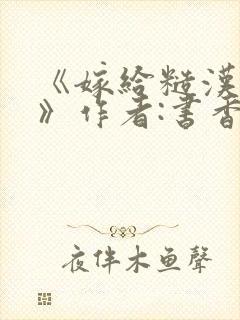 《嫁給糙漢
》作者:書香
夜伴木鱼聲